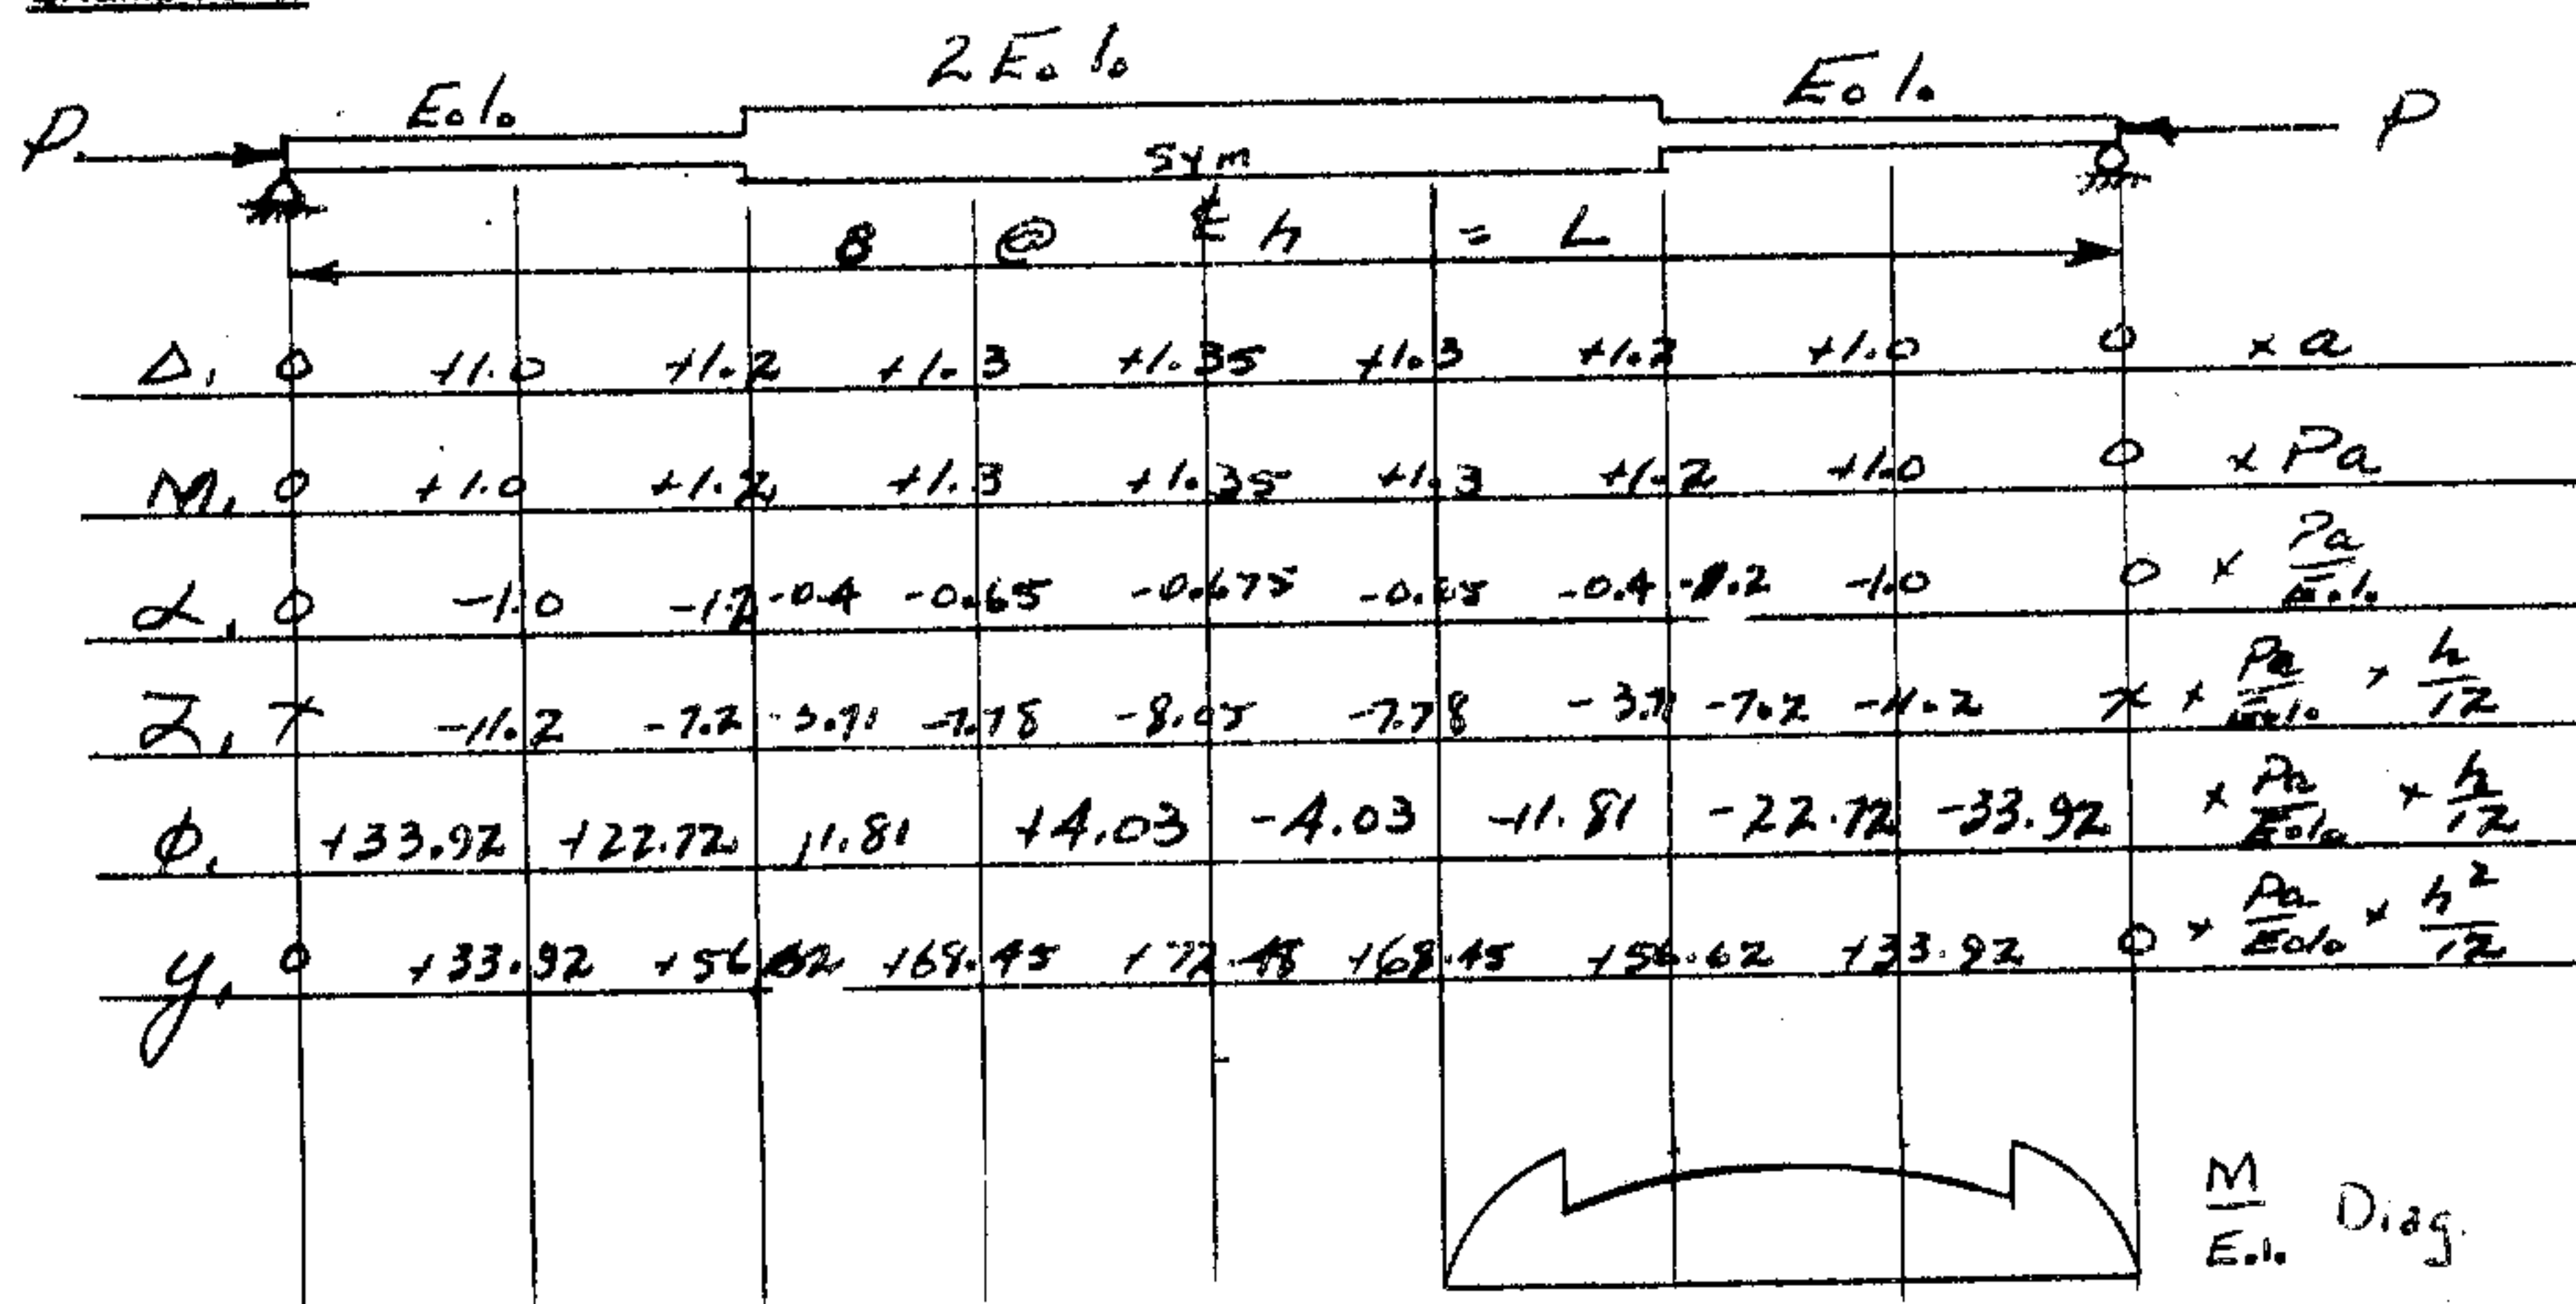 2E₀I₀
P E₀I₀ E₀I₀ P
sym
8 @ ℄ h = L
Δ₁ 0 +1.0 +1.2 +1.3 +1.35 +1.3 +1.2 +1.0 0 × a
M₁ 0 +1.0 +1.2 +1.3 +1.35 +1.3 +1.2 +1.0 0 × Pa
α₁ 0 -1.0 -1.2 -0.4 -0.65 -0.675 -0.65 -0.4 -1.2 -1.0 0 × Pa/E₀I₀
Z₁ × -11.2 -7.2 -3.71 -7.78 -8.05 -7.78 -3.71 -7.2 -11.2 × × Pa/E₀I₀ × h/12
φ₁ +33.92 +22.72 11.81 +4.03 -4.03 -11.81 -22.72 -33.92 × Pa/E₀I₀ × h/12
y₁ 0 +33.92 +56.62 +68.45 +72.48 +68.45 +56.62 +33.92 0 × Pa/E₀I₀ × h²/12
M/E.I. Diag.